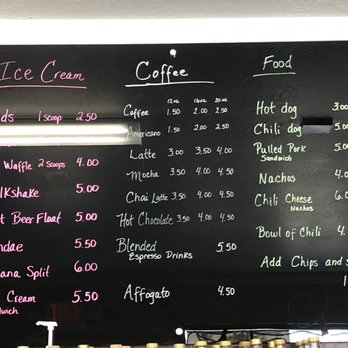 Ice Cream
ds 1 Scoop 2.50
Waffle 2 Scoops 4.00
lkshake 5.00
t Beer Float 5.00
ndae 5.50
ana Split 6.00
Cream 5.50
wich
Coffee
12oz 16oz 20oz
Coffee 1.50 2.00 2.50
Americano 1.50 2.00 2.50
Latte 3.00 3.50 4.00
Mocha 3.50 4.00 4.50
Chai Latte 3.50 4.00 4.50
Hot Chocolate 3.50 4.00 4.50
Blended 5.50
Espresso Drinks
Affogato 4.50
Food
Hot dog 3.00
Chili dog 5.0
Pulled Pork 5.0
Sandwich
Nachos 4.0
Chili Cheese 6.0
Nachos
Bowl of Chili 4.
Add Chips and s